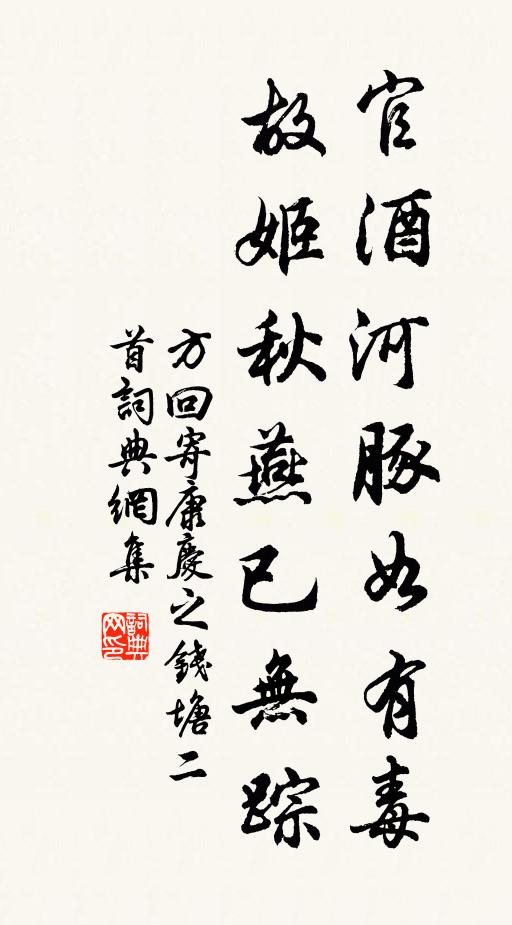 官酒河豚如有毒
故姬秋燕已無踪
方回寄康慶之錢塘二
首詞典網集
詞典网印